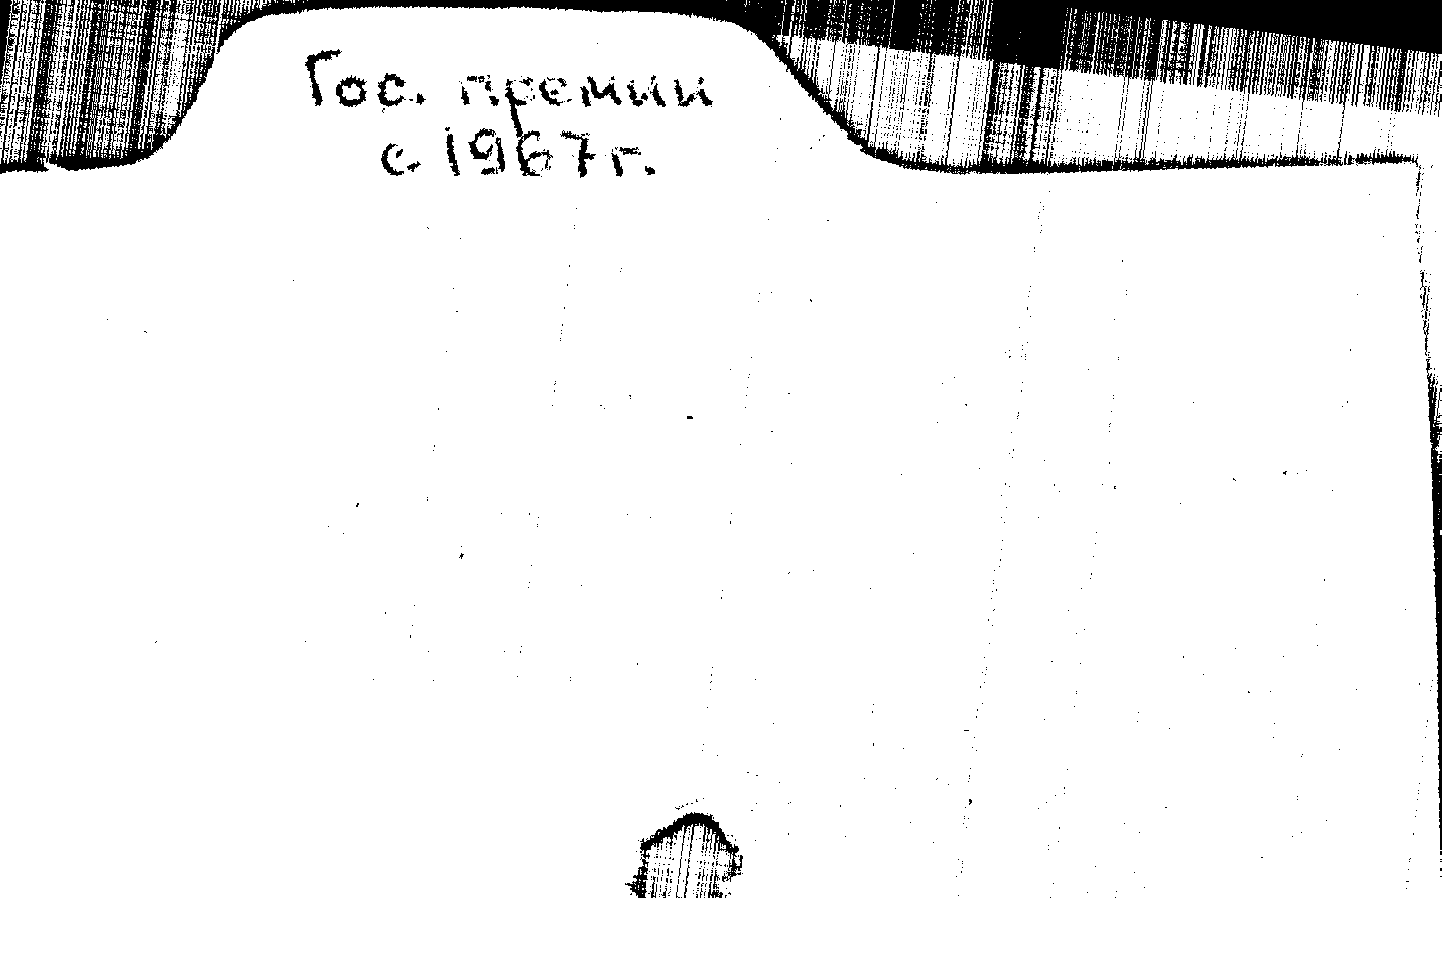 Гос. премии
с 1967г.